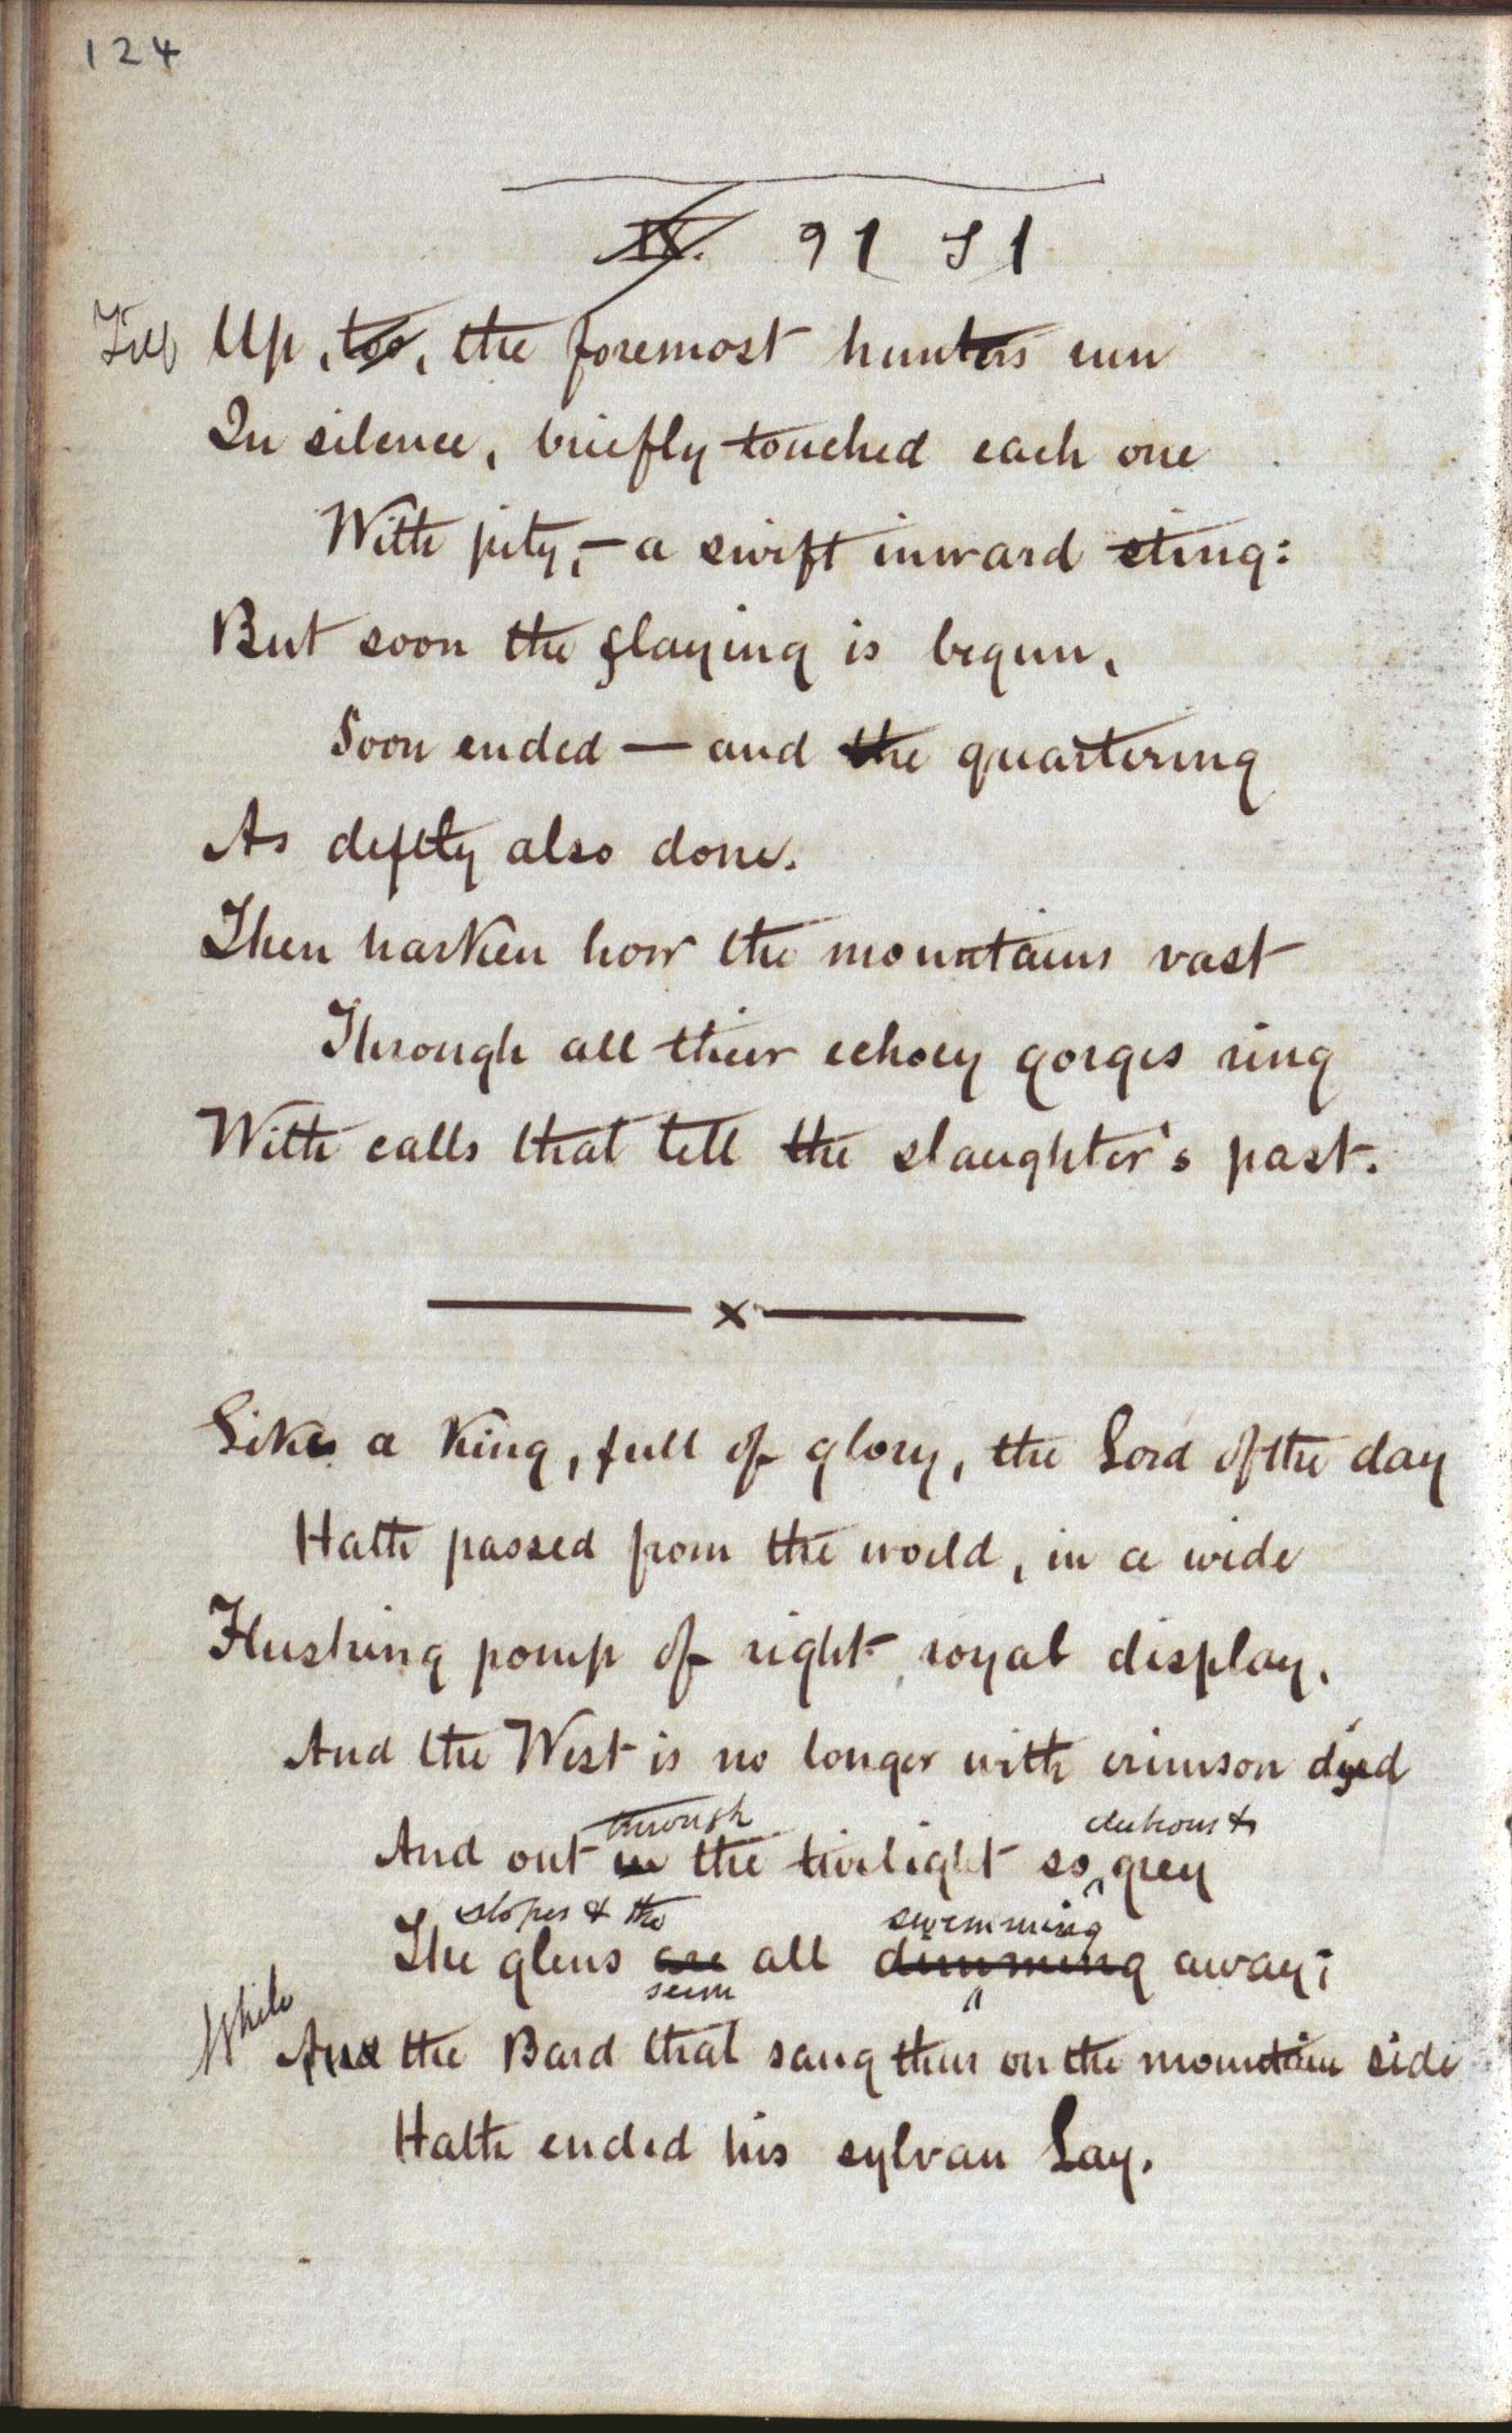 124
IX. 91 51
Till Up, too, the foremost hunters run
In silence, briefly touched each one
With pity,—a swift inward sting:
But soon the flaying is begun,
Soon ended — and the quartering
As deftly also done.
Then harken how the mountains vast
Through all their echoey gorges ring
With calls that tell the slaughter's past.
x
Like a King, full of glory, the Lord of the day
Hath passed from the world, in a wide
Flushing pomp of right royal display,
And the West is no longer with crimson dyed
through
And out in the twilight so grey
slopes & the swimming
The glens are all dimming away;
seem
While
And the Bard that sang thus on the mountain side
Hath ended his sylvan Lay.